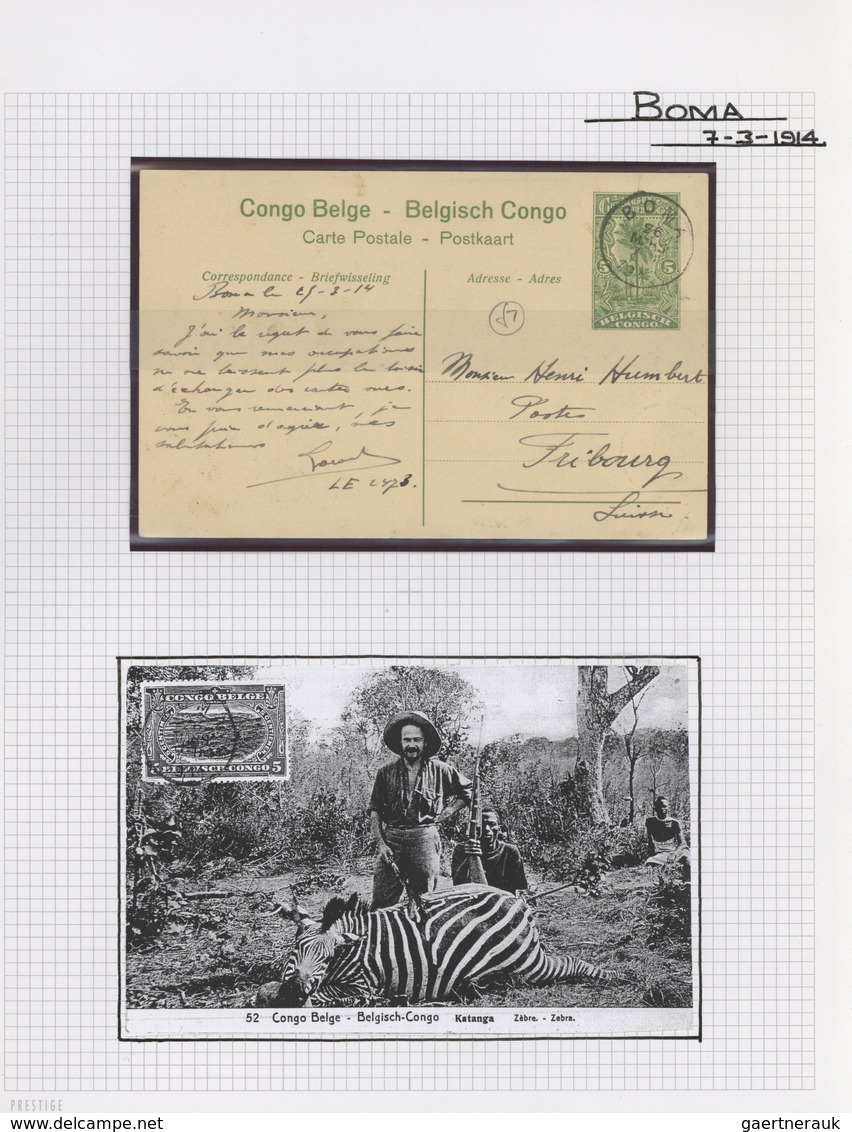 BOMA
7-3-1914
Congo Belge - Belgisch Congo
Carte Postale - Postkaart
Correspondance - Briefwisseling
Adresse - Adres
BOMA
26
5
5
BELGISCH
CONGO
Boma le
-3-14
Monsieur,
J'ai le regret de vous faire
savoir que mes occupations
ne me laissent plus le loisir
d'échanger des cartes vues.
En vous remerciant, je
vous prie d'agréer, mes
salutations
LE 2473.
Monsieur Henri Humbert
Postes
Fribourg
Suisse
CONGO BELGE
5 BELGISCH-CONGO 5
52 Congo Belge - Belgisch-Congo Katanga Zèbre. - Zebra.
PRESTIGE
gaertnerauk